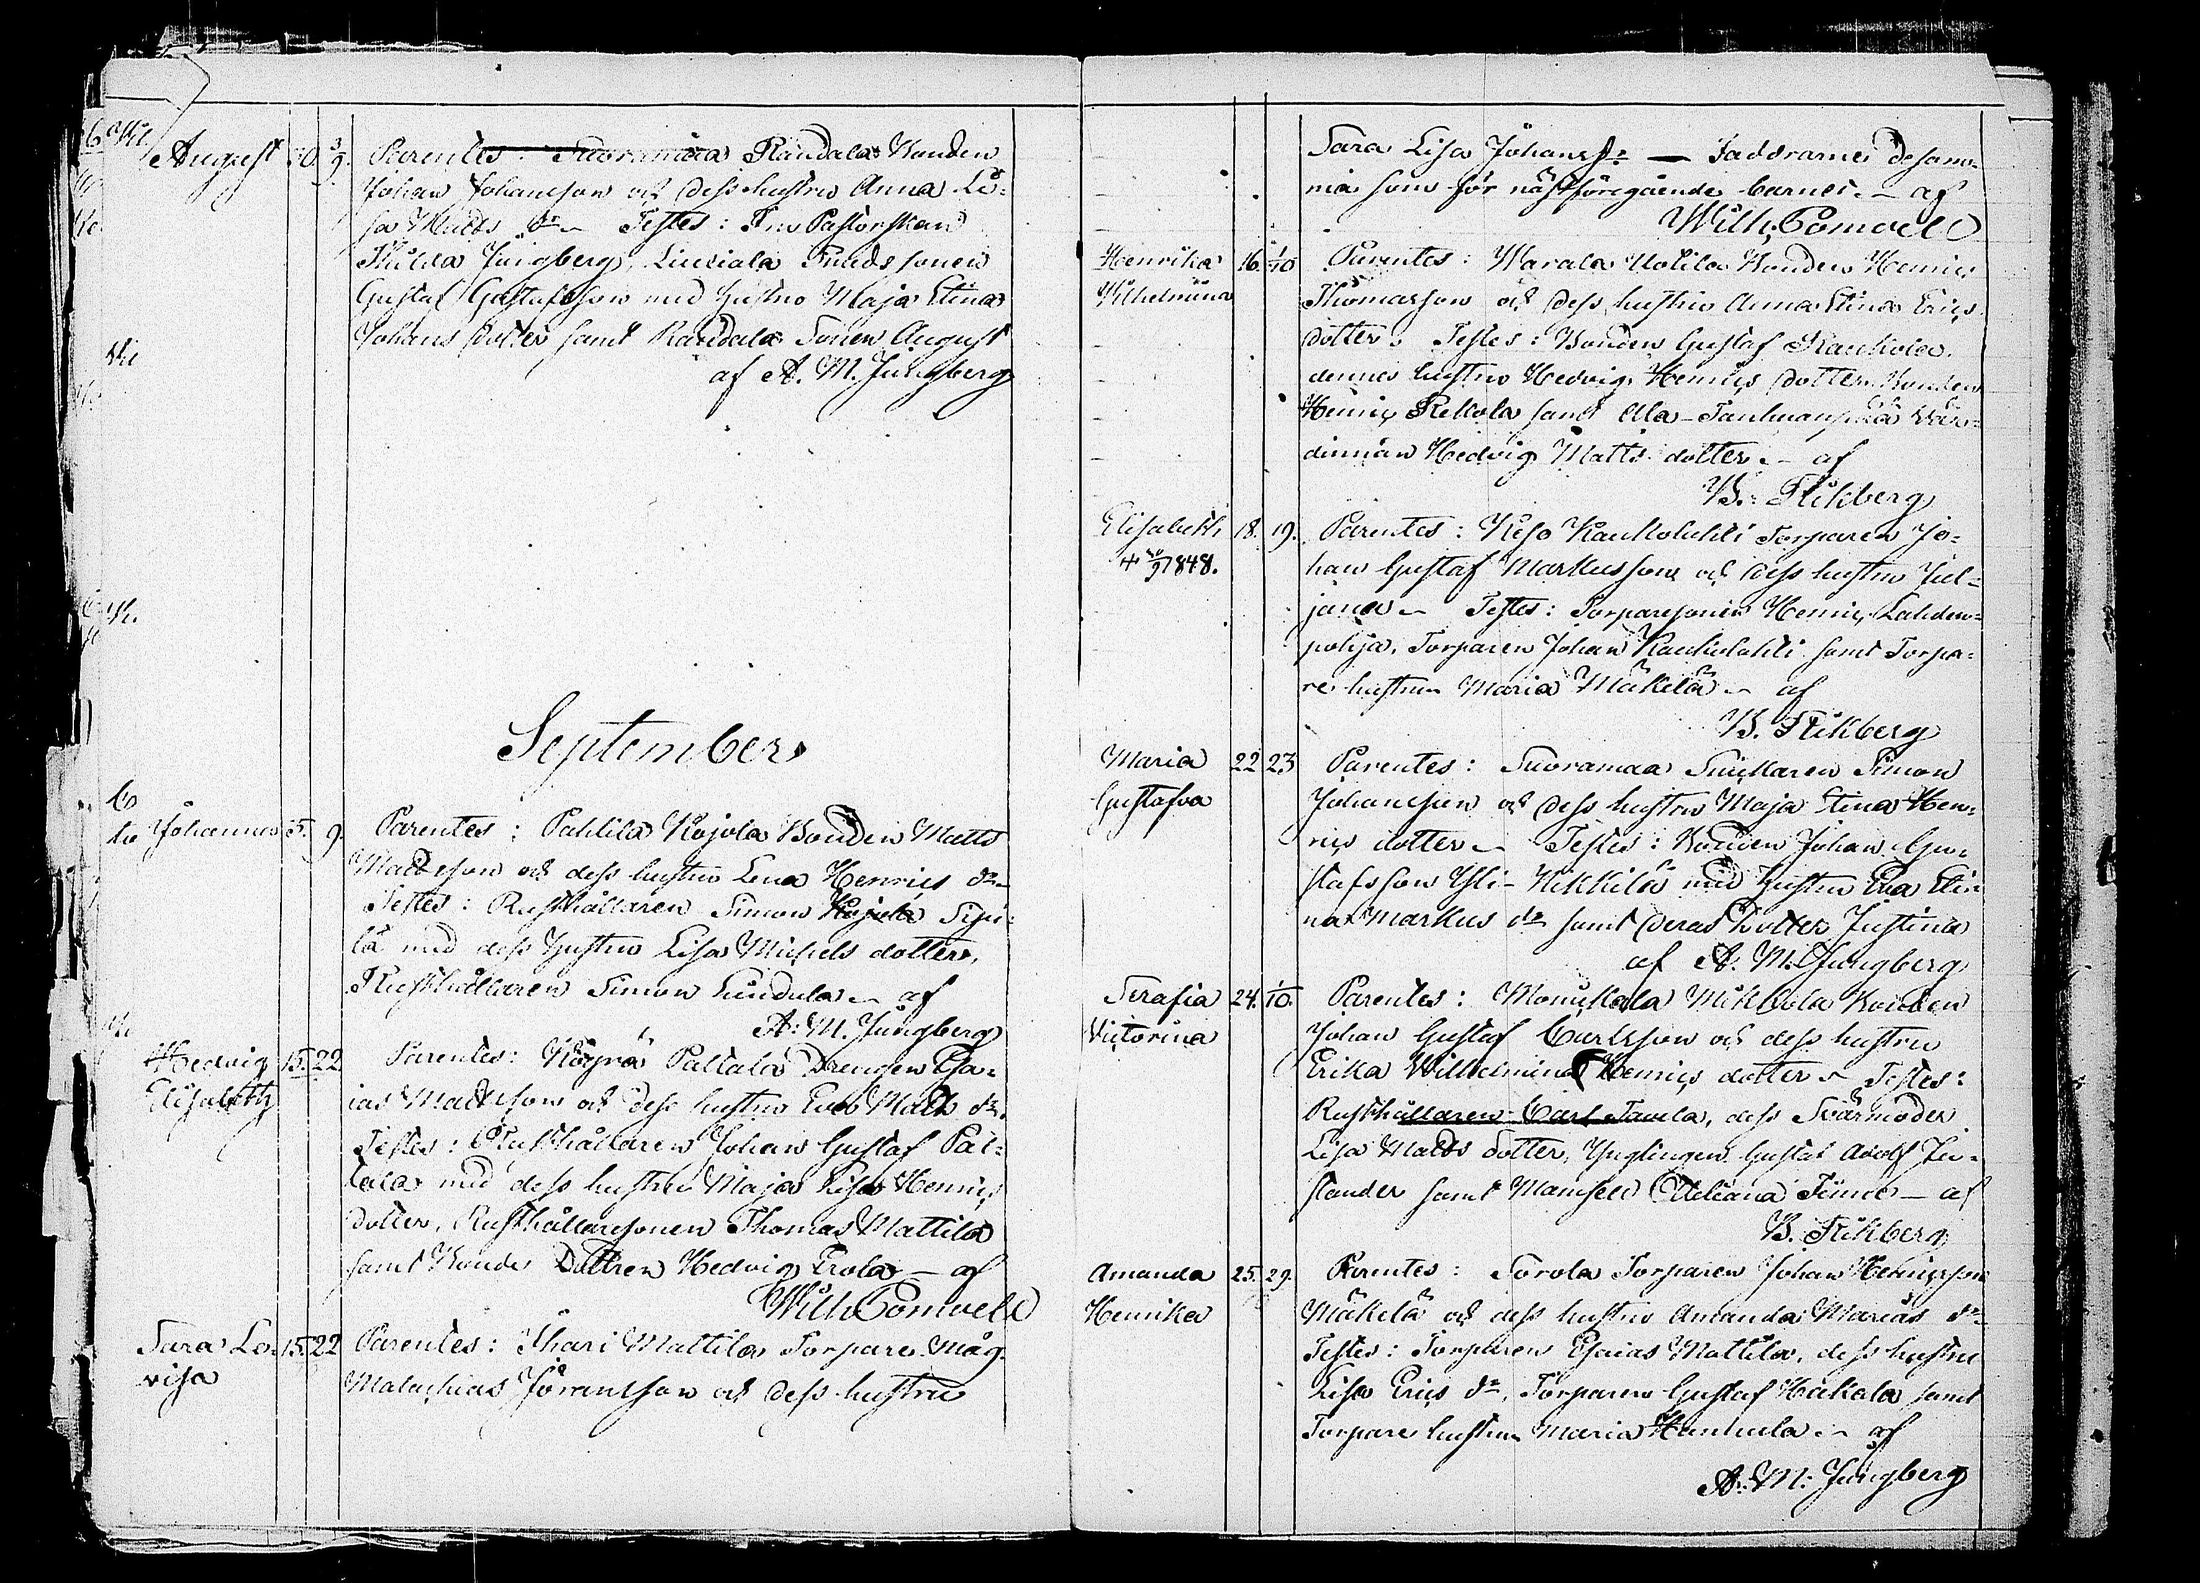 August 30. 3/9. Parentes: Suoramaa Randala Bonden
Johan Johansson och dess hustru Anna Li=
sa Matts dr – Testes: Fru Pastorskan
Hulda Jungberg, Liuviala Bondssonen
Gustaf Gustafsson med hustru Maja Stina
Johans dotter samt Randala Sonen August
af A. M. Jungberg
September
Johannes 5. 9. Parentes: Pahlila Kojola Bonden Matts
Mattsson och dess hustru Lena Henrics dr –
Testes: Rusthållaren Simon Kojola Sipi=
lä med dess hustru Lisa Michels dotter,
Rusthållaren Simon Lundula – af
A. M. Jungberg
Hedvig 15. 22. Parentes: Köyrä Paltala Drengen Esa=
Elisabeth ias Mattsson och dess hustru Eva Matts dr.
Testes: Rusthållaren Johan Gustaf Pal=
tala med dess hustru Maja Lisa Henrics
dotter, Rusthållaresonen Thomas Mattila
samt Bonde Dottren Hedvig Erola – af
Wilh. Pomvell
Sara Lo= 15. 22 Parentes: Ihari Mattila Torpare måg
visa Malachias Jöransson och dess hustru
Sara Lisa Johans dr – Faddrarne desam=
ma som för nästföregående barnet. – af
Wilh. Pomvell
Henrika 16. 1/10 Parentes: Warala Uotila Bonden Henric
Wilhelmina Thomasson och dess hustru Anna Stina Erics
dotter. Testes: Bonden Gustaf Kaukola,
dennes hustru Hedvig Henrics dotter, Bonden
Henric Rekola samt Ala-Tanhuanpää Wär=
dinnan Hedvig Matts dotter. – af
B. Flikberg
Elisabeth 18. 19. Parentes: Kiso Kaukolahti Torparen Jo=
+ 20/9 1848. han Gustaf Markusson och dess hustru Jul=
jana – Testes: Torparesonen Henric Lahden=
pohja, Torparen Johan Kaukolahti samt Torpa=
re hustrun Maria Mäkelä – af
B. Flikberg
Maria 22 23 Parentes: Suoramaa Snickaren Simon
Gustafva Johansson och dess hustru Maja Stina Hen=
rics dotter – Testes: Bonden Johan Gu=
stafsson Yli-Nikkilä med hustru Eva Sti=
na Markus dr samt deras Dotter Justina
af A. M. Jungberg
Serafia 24. 1/10. Parentes: Mikkola Bonden
Victorina Johan Gustaf Carlsson och dess hustru
Erika Wilhelmina Henrics dotter – Testes:
Rusthållaren Carl Tamla, dess Svärmoder
Lisa Matts dotter, Ynglingen Gustaf Adolf
samt Mamsell – af
B. Flikberg
Amanda 25. 29. Parentes: Sorola Torparen Johan Henricsson
Henrika Mäkelä och dess hustru Amanda Marias dr
Testes: Torparen Esaias Mattila, dess hustru
Lisa Erics dr, Torparen Gustaf Hakala samt
Torpare hustrun Maria Hanhula – af
A. M. Jungberg